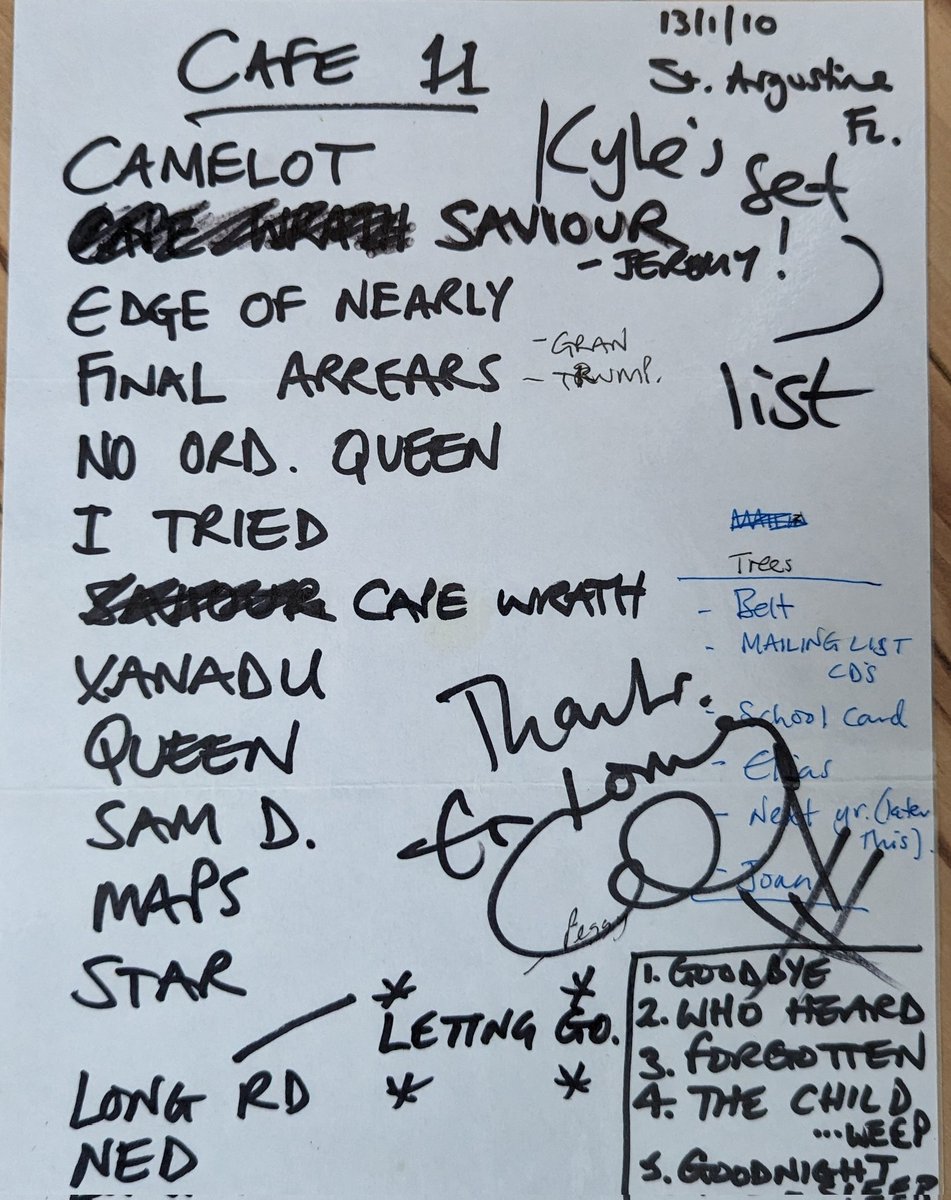 CAFE 11
13/1/10
St. Argustine
FL.
Kyle's
set
!
list
CAMELOT
CAPE WRATH SAVIOUR
- JEREMY
EDGE OF NEARLY
FINAL ARREARS
- GRAN
- TRWMP.
NO ORD. QUEEN
I TRIED
SAVIOUR CAPE WRATH
XANADU
QUEEN
SAM D.
MAPS
STAR
* *
LETTING GO.
* *
LONG RD
NED
Trees
- Belt
- MAILING LIST
CD'S
- School Card
- Elias
- Next yr. (later
this).
- Joan
Thanks.
Peggy
1. GOODBYE
2. WHO HEARD
3. FORGOTTEN
4. THE CHILD
...WEEP
5. GOODNIGHT
SLEEP